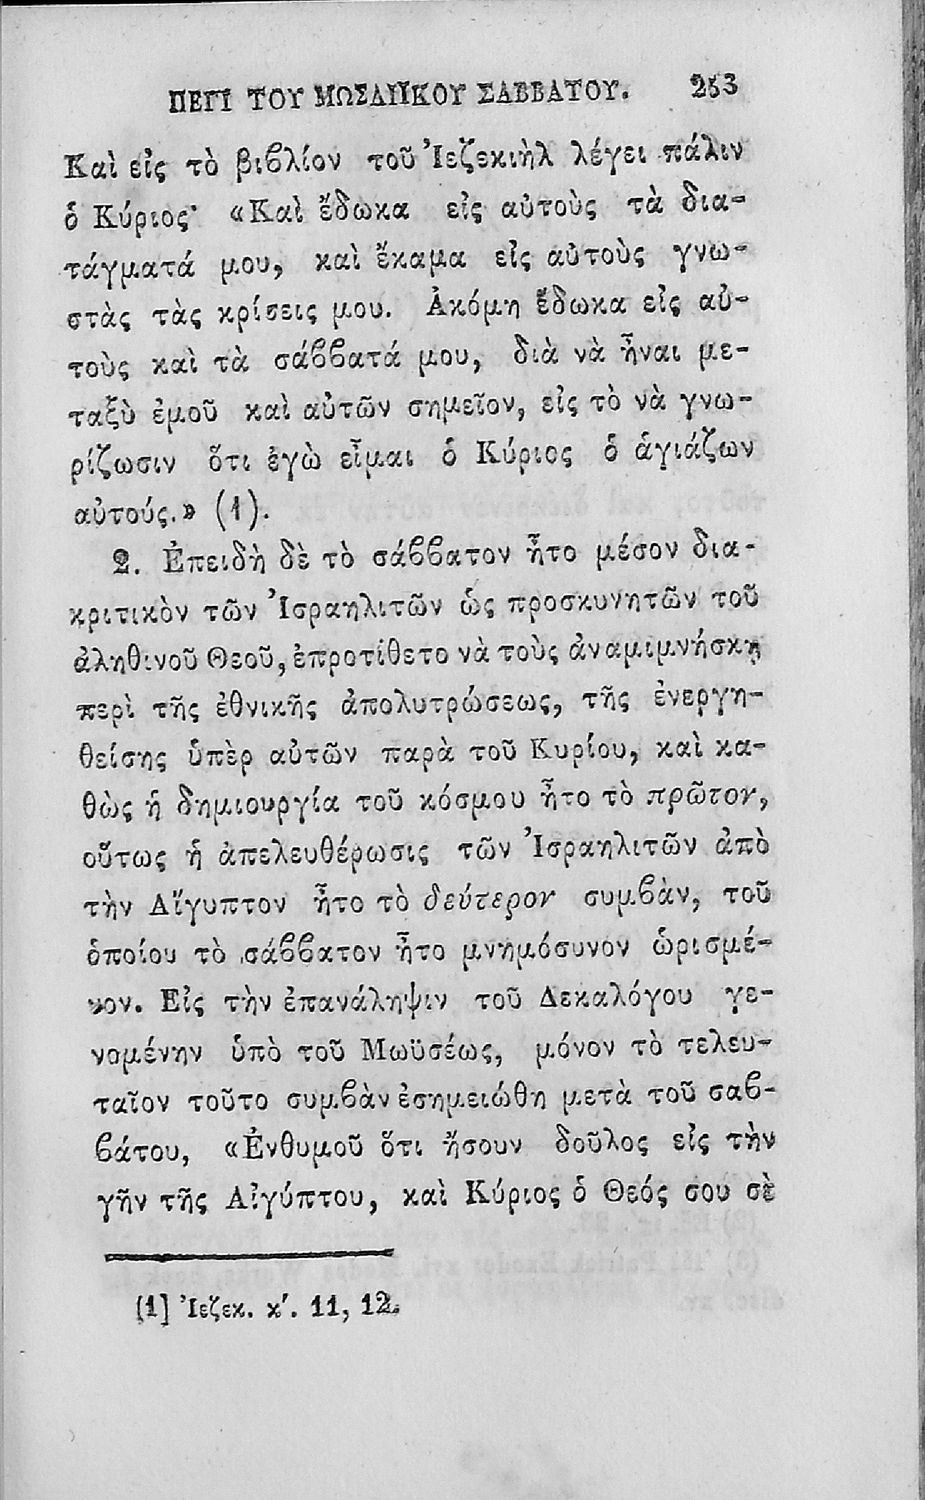 ΠΕΡΙ ΤΟΥ ΜΩΣΑΪΚΟΥ ΣΑΒΒΑΤΟΥ. 253
Καὶ εἰς τὸ βιϐλίον τοῦ Ἰεζεκιὴλ λέγει πάλιν
ὁ Κύριος· «Καὶ ἔδωκα εἰς αὐτοὺς τὰ δια-
τάγματά μου, καὶ ἔκαμα εἰς αὐτοὺς γνω-
στὰς τὰς κρίσεις μου. Ἀκόμη ἔδωκα εἰς αὐ-
τοὺς καὶ τὰ σάϐϐατά μου, διὰ νὰ ἦναι με-
ταξὺ ἐμοῦ καὶ αὐτῶν σημεῖον, εἰς τὸ νὰ γνω-
ρίζωσιν ὅτι ἐγὼ εἶμαι ὁ Κύριος ὁ ἁγιάζων
αὐτούς.» (1).
2. Ἐπειδὴ δὲ τὸ σάϐϐατον ἦτο μέσον δια-
κριτικὸν τῶν Ἰσραηλιτῶν ὡς προσκυνητῶν τοῦ
ἀληθινοῦ Θεοῦ, ἐπροτίθετο νὰ τοὺς ἀναμιμνήσκῃ
περὶ τῆς ἐθνικῆς ἀπολυτρώσεως, τῆς ἐνεργη-
θείσης ὑπὲρ αὐτῶν παρὰ τοῦ Κυρίου, καὶ κα-
θὼς ἡ δημιουργία τοῦ κόσμου ἦτο τὸ πρῶτον,
οὕτως ἡ ἀπελευθέρωσις τῶν Ἰσραηλιτῶν ἀπὸ
τὴν Αἴγυπτον ἦτο τὸ δεύτερον συμϐὰν, τοῦ
ὁποίου τὸ σάϐϐατον ἦτο μνημόσυνον ὡρισμέ-
νον. Εἰς τὴν ἐπανάληψιν τοῦ Δεκαλόγου γε-
νομένην ὑπὸ τοῦ Μωϋσέως, μόνον τὸ τελευ-
ταῖον τοῦτο συμϐὰν ἐσημειώθη μετὰ τοῦ σαϐ-
ϐάτου, «Ἐνθυμοῦ ὅτι ἤσουν δοῦλος εἰς τὴν
γῆν τῆς Αἰγύπτου, καὶ Κύριος ὁ Θεός σου σὲ
[1] Ἰεζεκ. κ΄. 11, 12.